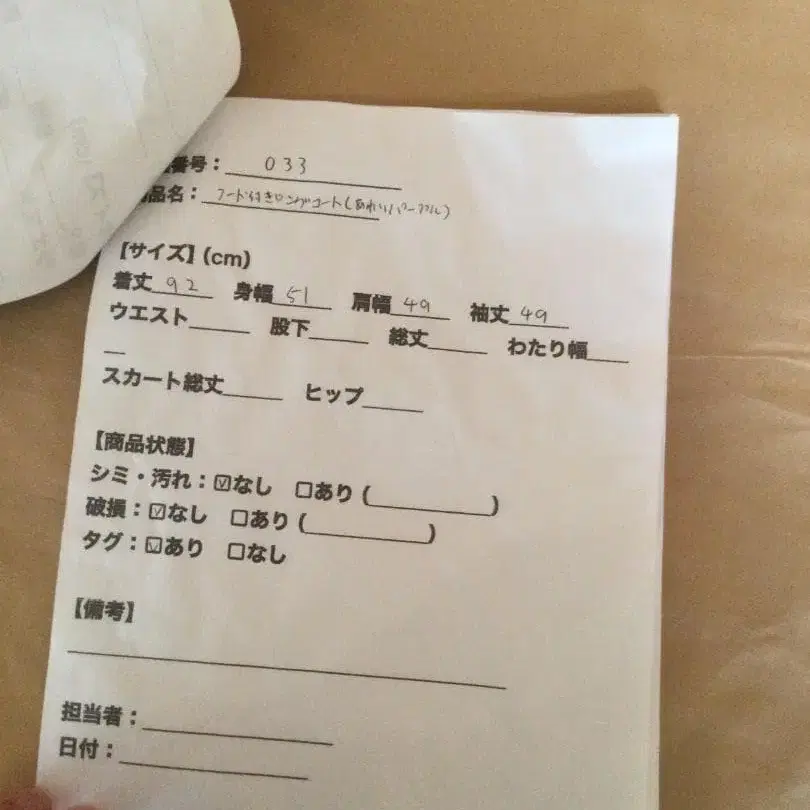 番号： 033
品名： フード付きロングコート(あわいパープル)
【サイズ】(cm)
着丈 92 身幅 51 肩幅 49 袖丈 49
ウエスト 股下 総丈 わたり幅
スカート総丈 ヒップ
【商品状態】
シミ・汚れ：☑なし □あり ( )
破損：☑なし □あり ( )
タグ：☑あり □なし
【備考】
担当者：
日付：